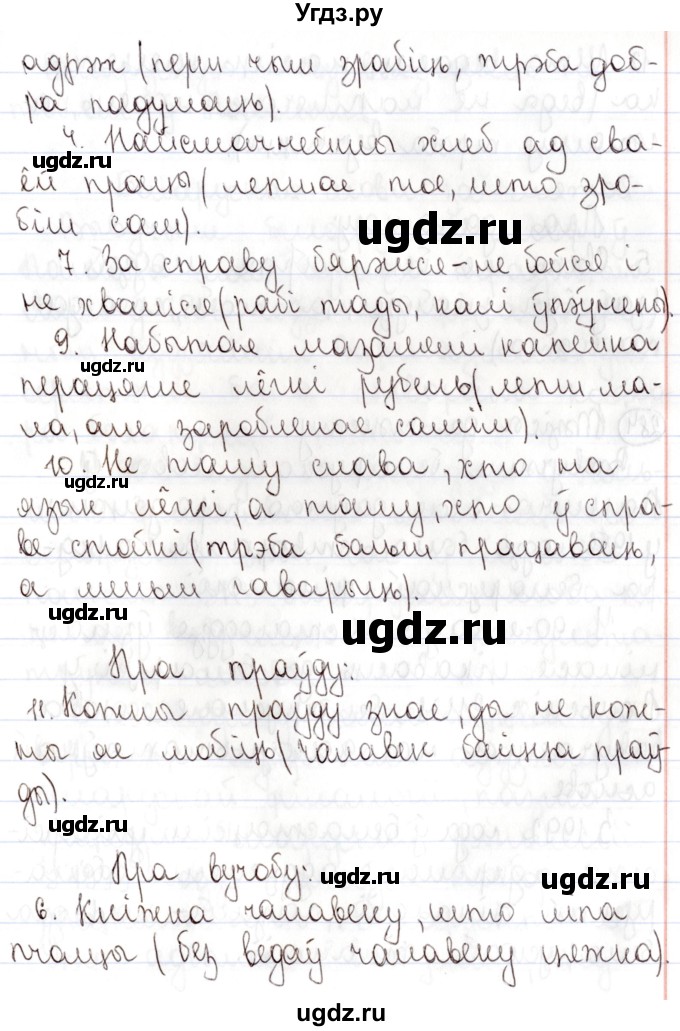 Угдз.ру
адрэж (перш чым зрабіць, трэба доб-
ра падумаць).
ugdz.ru
4. Найсмачнейшы хлеб ад сва-
ёй працы (лепшае тое, што зро-
біш сам).
ugdz.ru
ugdz.ru
7. За справу бяржися - не бойся і
не хваліся (рабі тады, калі ўпэўнены).
9. Набытая мазалямі капейка
ugdz.ru
перацягне лёгкі рубель (лепш ма-
ла, але заробленае самім).
10. Не таму слава, хто на
ugdz.ru
язык лёгкі, а таму, хто ў спра-
ве стойкі (трэба больш працаваць,
а меньш гаварыць).
ugdz.ru
ugdz.ru
Пра праўду:
11. Кожны праўду знае, ды не кож-
ны яе любіць (чалавек баіцца праў-
ды).
ugdz.ru
Пра вучобу:
ugdz.ru
ugdz.ru
6. Кніжка чалавеку, што мпа
пчалцы (без ведаў чалавеку цяжка).
ugdz.ru